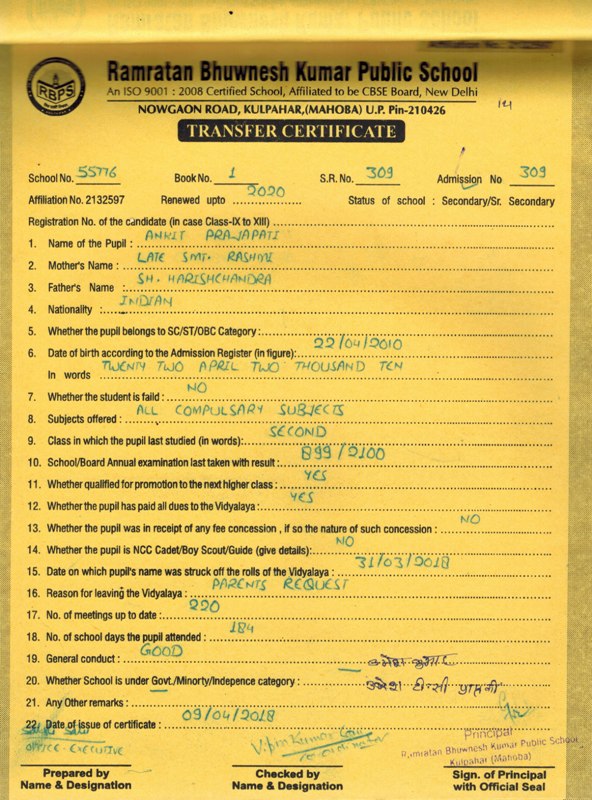 Affiliation No. 2132597
RBPS
Ramratan Bhuwnesh Kumar Public School
An ISO 9001 : 2008 Certified School, Affiliated to be CBSE Board, New Delhi
NOWGAON ROAD, KULPAHAR,(MAHOBA) U.P. Pin-210426
TRANSFER CERTIFICATE
School No. 55776 Book No. 1 S.R. No. 309 Admission No 309
Affiliation No. 2132597 Renewed upto 2020 Status of school : Secondary/Sr. Secondary
Registration No. of the candidate (in case Class-IX to XIII)
1. Name of the Pupil : ANKIT PRAJAPATI
2. Mother's Name : LATE SMT. RASHMI
3. Father's Name : SH. HARISHCHANDRA
4. Nationality : INDIAN
5. Whether the pupil belongs to SC/ST/OBC Category :
6. Date of birth according to the Admission Register (in figure): 22/04/2010
In words TWENTY TWO APRIL TWO THOUSAND TEN
7. Whether the student is faild : NO
8. Subjects offered : ALL COMPULSARY SUBJECTS
9. Class in which the pupil last studied (in words): SECOND
10. School/Board Annual examination last taken with result : 899/2100
11. Whether qualified for promotion to the next higher class : YES
12. Whether the pupil has paid all dues to the Vidyalaya : YES
13. Whether the pupil was in receipt of any fee concession , if so the nature of such concession : NO
14. Whether the pupil is NCC Cadet/Boy Scout/Guide (give details): NO
15. Date on which pupil's name was struck off the rolls of the Vidyalaya : 31/03/2018
16. Reason for leaving the Vidyalaya : PARENTS REQUEST
17. No. of meetings up to date : 220
18. No. of school days the pupil attended : 184
19. General conduct : GOOD
20. Whether School is under Govt./Minorty/Indepence category :
21. Any Other remarks :
22. Date of issue of certificate : 09/04/2018
OFFICE EXECUTIVE
Principal
Ramratan Bhuwnesh Kumar Public School
Kulpahar (Mahoba)
Prepared by Checked by Sign. of Principal
Name & Designation Name & Designation with Official Seal